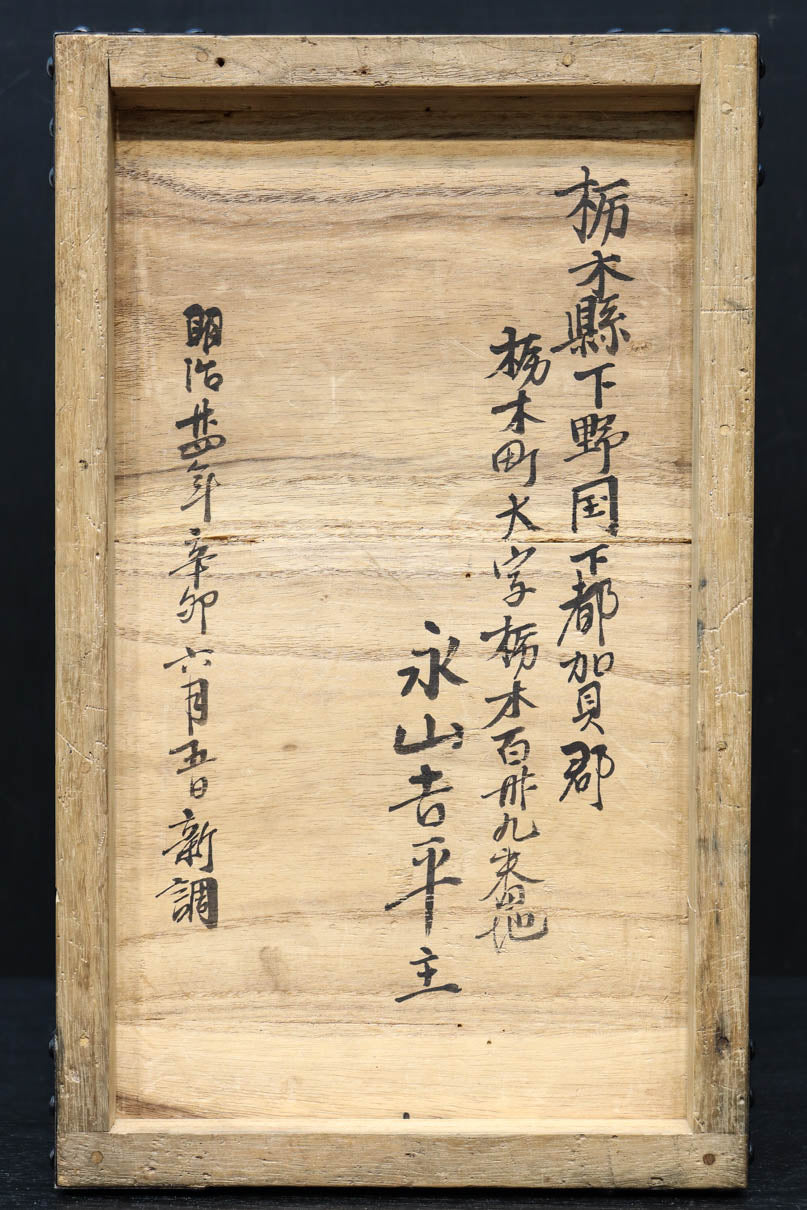 栃木縣下野国下都賀郡
栃木町大字栃木百卅九番地
永山吉平主
明治廿四年辛卯六月五日新調